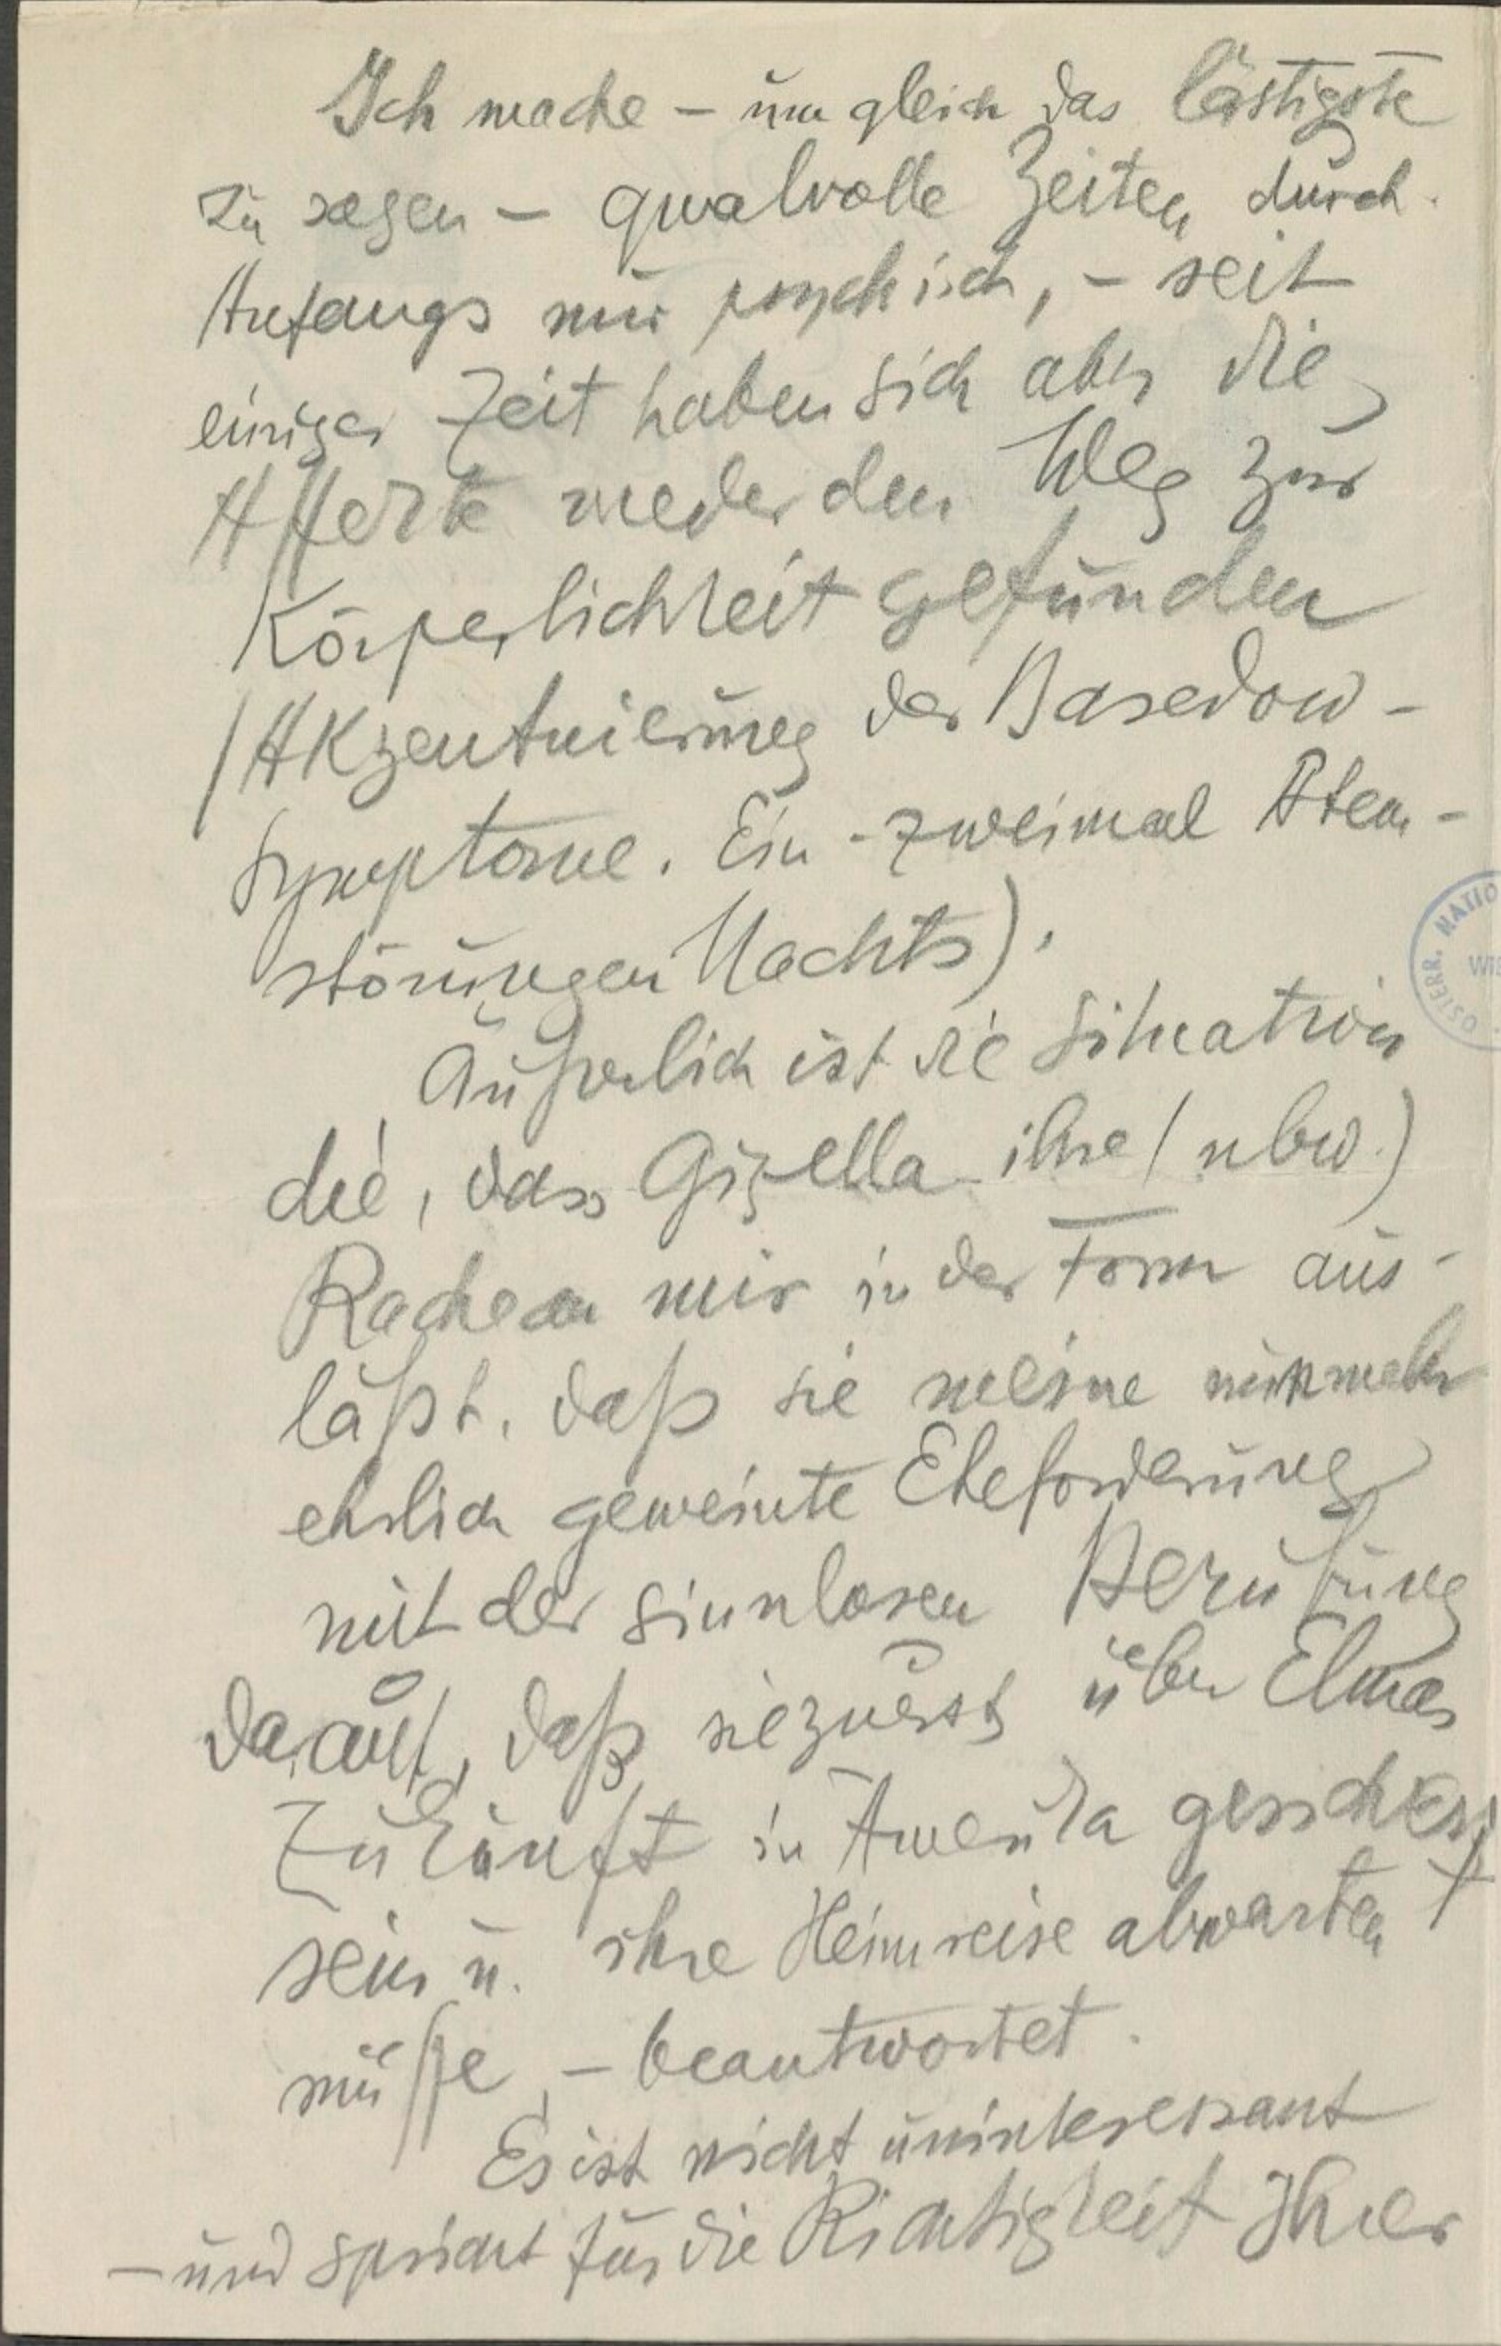 Ich mache – um gleich das lästigste
zu sagen – qualvolle Zeiten durch.
Anfangs nur psychisch, – seit
einiger Zeit haben sich aber die
Affekte wieder den Weg zur
Körperlichkeit gefunden
(Akzentuierung der Basedow-
Symptome. Ein-zweimal Atem-
störungen Nachts).
Äußerlich ist die Situation
die, dass Gizella ihre (ubw.)
Rache an mir in der Form aus-
läßt, daß sie meine nunmehr
ehrlich gemeinte Eheforderung
mit der sinnlosen Berufung
darauf, daß sie zuerst über Elmas
Zukunft in Amerika gesichert
sein u. ihre Heimreise abwarten
müsse, – beantwortet.
Es ist nicht uninteressant
– und spricht für die Richtigkeit Ihrer
ÖSTERR. NATIO
WIE